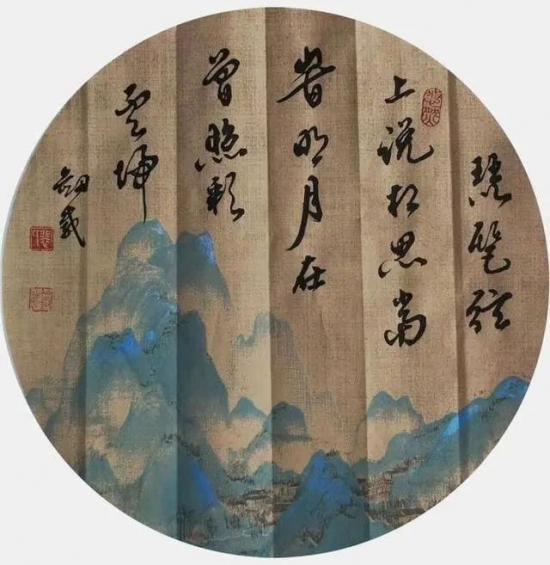 琵琶弦
上说相思当
旹明月在
曾照彩
雲归